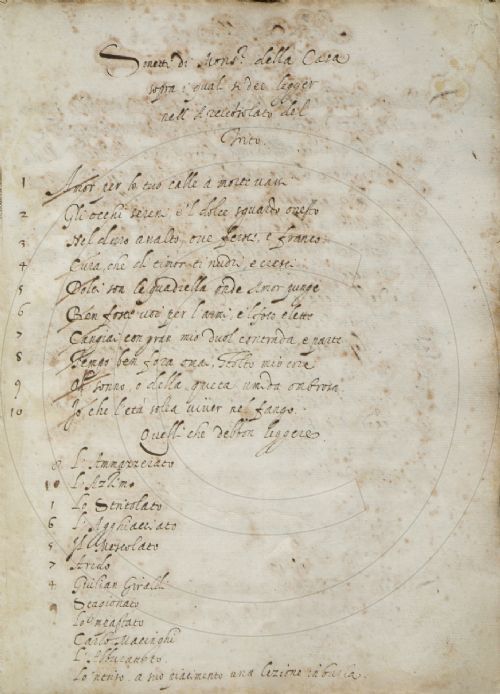 Sonetti di Mons.r della Casa
sopra i quali si dee legger
nell' Arciconsolato del
Trito.
1 Amor per lo tuo calle a morte vassi
2 Gli occhi sereni, e 'l dolce sguardo onesto
3 Nel duro assalto, ove feroce, e franco
4 Cura, che di timor ti nudri, e cresci
5 Dolci son le quadrella onde Amor punge
6 Ben foste voi per l'armi, e 'l foco elette
7 Cangiai con gran mio duol contrada, e parte
8 Tempo ben fora omai, stolto mio core
9 O sonno, o della queta umida ombrosa
10 Io, che l'età solea viver nel fango.
Quelli che debbon leggere
8 L'Ammazzerato
10 L'Azzimo
1 Lo Stritolato
6 L'Agghiacciato
5 Il Mescolato
7 Arido
4 Giulian Giraldi
9 Stagionato
Lo 'mpastato
Carlo Macinghi
L'Abburattato
Lo 'ntriso a suo piacimento una lezione in burla.